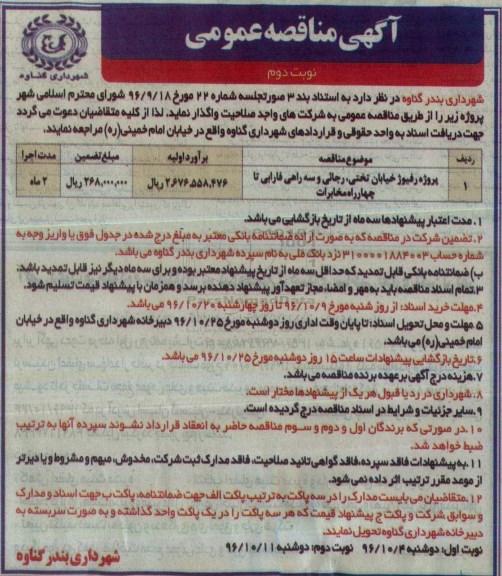 آگهی مناقصه عمومی
نوبت دوم
شهرداری گناوه
شهرداری بندر گناوه در نظر دارد به استناد بند ۳ صورتجلسه شماره ۲۲ مورخ ۹۶/۹/۱۸ شورای محترم اسلامی شهر
پروژه زیر را از طریق مناقصه عمومی به شرکت های واجد صلاحیت واگذار نماید. لذا از کلیه متقاضیان دعوت می گردد
جهت دریافت اسناد به واحد حقوقی و قراردادهای شهرداری گناوه واقع در خیابان امام خمینی(ره) مراجعه نمایند.
ردیف موضوع مناقصه برآورد اولیه مبلغ تضمین مدت اجرا
۱ پروژه رفیوژ خیابان تختی، رجائی و سه راهی فارابی تا چهارراه مخابرات ۲،۶۷۶،۵۵۸،۴۷۶ ریال ۲۶۸،۰۰۰،۰۰۰ ریال ۲ ماه
۱. مدت اعتبار پیشنهادها سه ماه از تاریخ بازگشایی می باشد.
۲. تضمین شرکت در مناقصه که به صورت ارائه ضمانتنامه بانکی معتبر به مبلغ درج شده در جدول فوق یا واریز وجه به
شماره حساب ۳۱۰۰۰۰۱۸۸۴۰۰۳ نزد بانک ملی به نام سپرده شهرداری بندر گناوه می باشد.
ب) ضمانتنامه بانکی قابل تمدید که حداقل سه ماه از تاریخ پیشنهاد معتبر بوده و برای سه ماه دیگر نیز قابل تمدید باشد.
۳. تمام اسناد مناقصه باید به مهر و امضاء مجاز تعهدآور پیشنهاد دهنده برسد و همزمان با پیشنهاد قیمت تسلیم شود.
۴. مهلت خرید اسناد: از روز شنبه مورخ ۹۶/۱۰/۹ تا روز چهارشنبه ۹۶/۱۰/۲۰ می باشد.
۵. مهلت و محل تحویل اسناد: تا پایان وقت اداری روز دوشنبه مورخ ۹۶/۱۰/۲۵ دبیرخانه شهرداری گناوه واقع در خیابان
امام خمینی(ره) می باشد.
۶. تاریخ بازگشایی پیشنهادات ساعت ۱۵ روز دوشنبه مورخ ۹۶/۱۰/۲۵ می باشد.
۷. هزینه درج آگهی بر عهده برنده مناقصه می باشد.
۸. شهرداری در رد یا قبول هر یک از پیشنهادها مختار است.
۹. سایر جزئیات و شرایط در اسناد مناقصه درج گردیده است.
۱۰. در صورتی که برندگان اول و دوم و سوم مناقصه حاضر به انعقاد قرارداد نشوند سپرده آنها به ترتیب
ضبط خواهد شد.
۱۱. به پیشنهادات فاقد سپرده، فاقد گواهی تائید صلاحیت، فاقد مدارک ثبت شرکت، مخدوش، مبهم و مشروط و یا دیرتر
از موعد مقرر ترتیب اثر داده نمی شود.
۱۲. متقاضیان می بایست مدارک را در سه پاکت به ترتیب پاکت الف جهت ضمانتنامه، پاکت ب جهت اسناد و مدارک
و سوابق شرکت و پاکت ج پیشنهاد قیمت که هر سه پاکت را در یک پاکت واحد گذاشته و به صورت سربسته به
دبیرخانه شهرداری گناوه تحویل نمایند.
نوبت اول: دوشنبه ۹۶/۱۰/۴ نوبت دوم: دوشنبه ۹۶/۱۰/۱۱
شهرداری بندر گناوه